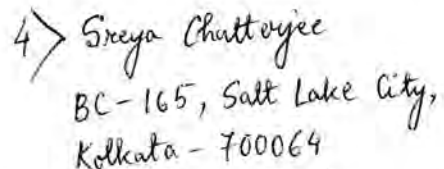 4> Sreya Chatterjee
BC-165, Salt Lake City,
Kolkata - 700064